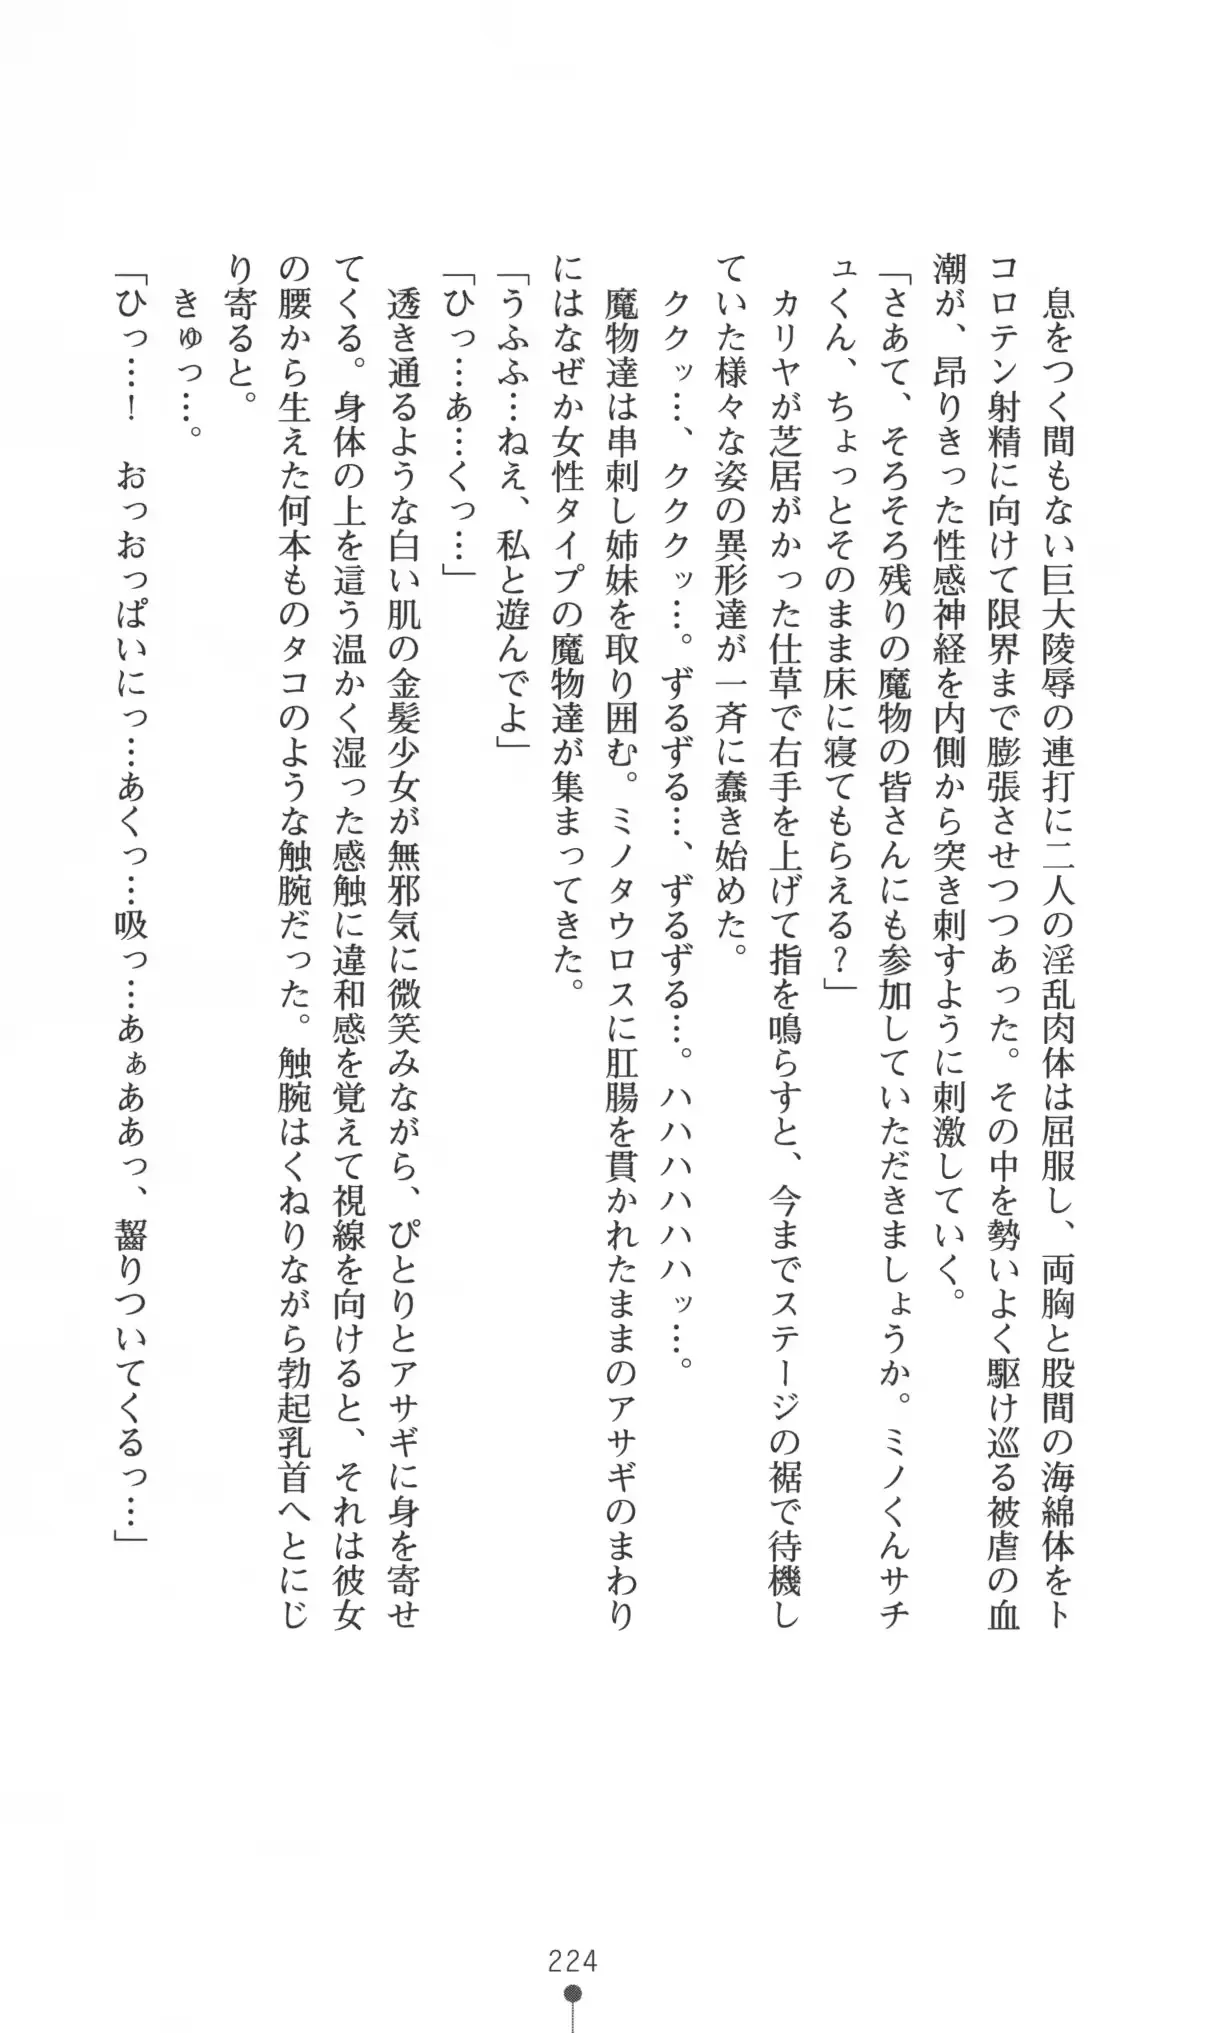 息をつく間もない巨大陵辱の連打に二人の淫乱肉体は屈服し、両胸と股間の海綿体をト
コロテン射精に向けて限界まで膨張させつつあった。その中を勢いよく駆け巡る被虐の血
潮が、昂りきった性感神経を内側から突き刺すように刺激していく。
「さあて、そろそろ残りの魔物の皆さんにも参加していただきましょうか。ミノくんサチ
ュくん、ちょっとそのまま床に寝てもらえる？」
　カリヤが芝居がかった仕草で右手を上げて指を鳴らすと、今までステージの裾で待機し
ていた様々な姿の異形達が一斉に蠢き始めた。
　ククッ…、クククッ…。ずるずる…、ずるずる…。ハハハハハハッ…。
　魔物達は串刺し姉妹を取り囲む。ミノタウロスに肛腸を貫かれたままのアサギのまわり
にはなぜか女性タイプの魔物達が集まってきた。
「うふふ…ねえ、私と遊んでよ」
「ひっ…あ…くっ…」
　透き通るような白い肌の金髪少女が無邪気に微笑みながら、ぴとりとアサギに身を寄せ
てくる。身体の上を這う温かく湿った感触に違和感を覚えて視線を向けると、それは彼女
の腰から生えた何本ものタコのような触腕だった。触腕はくねりながら勃起乳首へとにじ
り寄ると。
　きゅっ…。
「ひっ…！　おっおっぱいにっ…あくっ…吸っ…あぁああっ、齧りついてくるっ…」
224